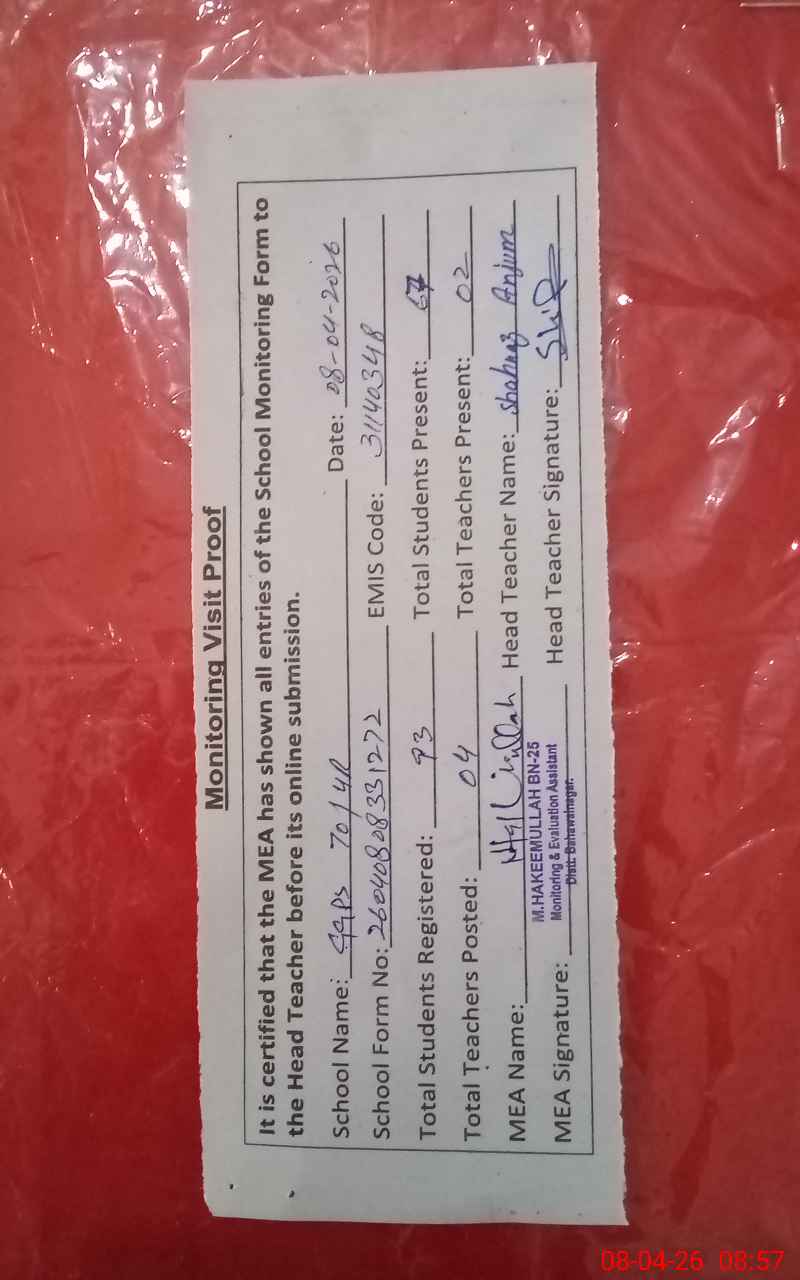 Monitoring Visit Proof
It is certified that the MEA has shown all entries of the School Monitoring Form to
the Head Teacher before its online submission.
School Name: GGPS 70/4R Date: 08-04-2026
School Form No: 26040808331272 EMIS Code: 31140348
Total Students Registered: 93 Total Students Present: 67
Total Teachers Posted: 04 Total Teachers Present: 02
MEA Name: Head Teacher Name: Shahnaz Anjum
M.HAKEEMULLAH BN-25
Monitoring & Evaluation Assistant
Distt. Bahawalnagar.
MEA Signature: Head Teacher Signature:
08-04-26 08:57